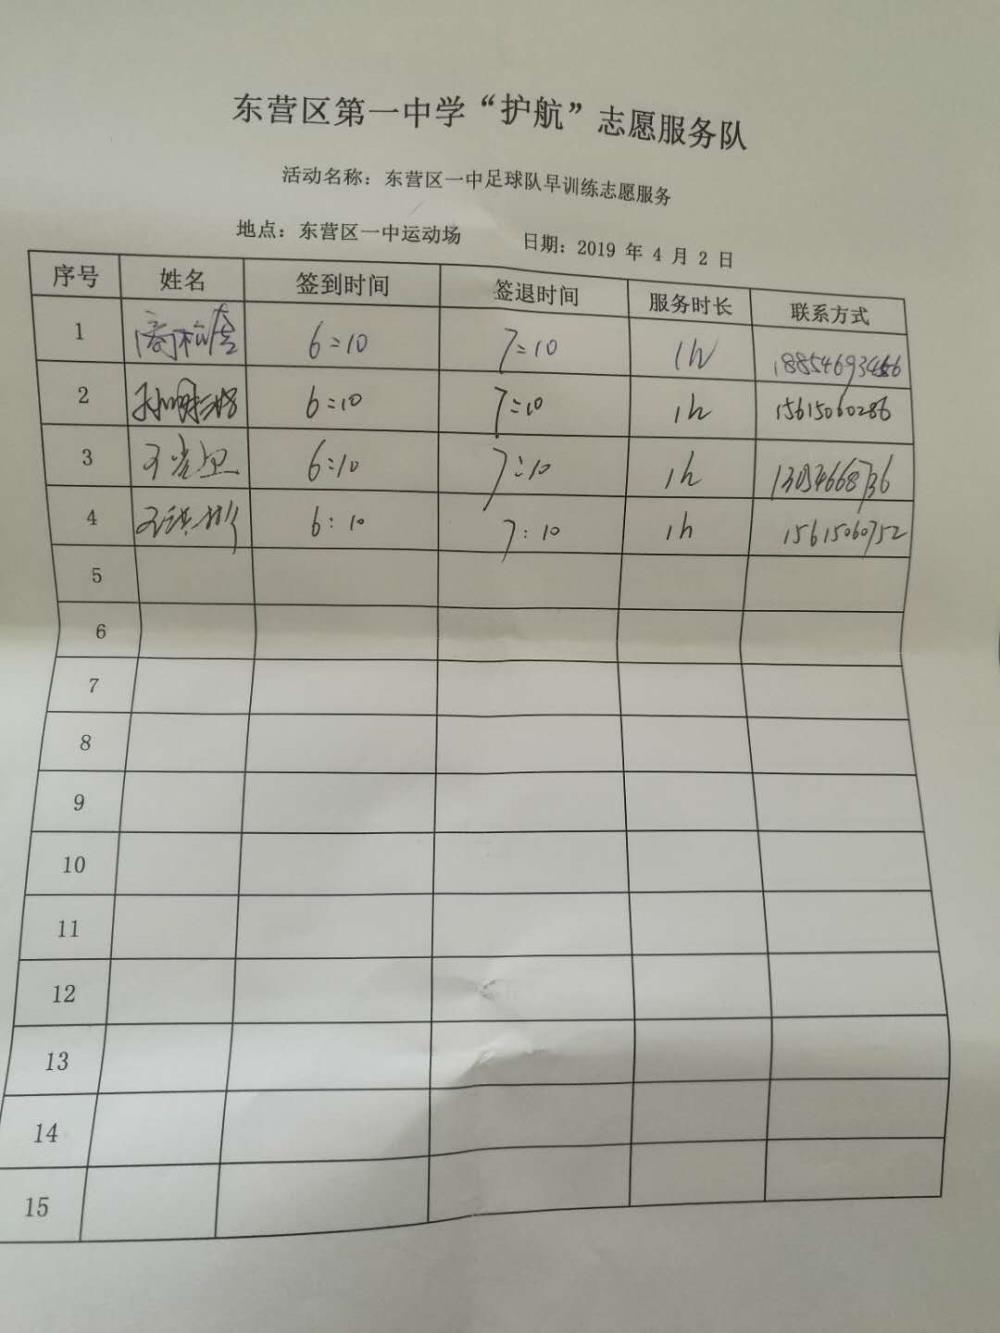 东营区第一中学“护航”志愿服务队
活动名称：东营区一中足球队早训练志愿服务
地点：东营区一中运动场 日期：2019 年 4 月 2 日
序号 姓名 签到时间 签退时间 服务时长 联系方式
1 6:10 7:10 1h
2 6:10 7:10 1h 15615060286
3 6:10 7:10 1h
4 6:10 7:10 1h 15615060752
5
6
7
8
9
10
11
12
13
14
15